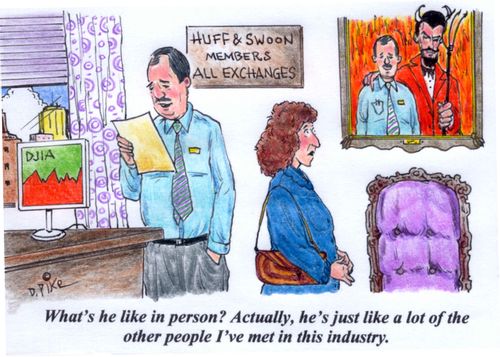 HUFF & SWOON
MEMBERS
ALL EXCHANGES
DJIA
D. PIKE
What's he like in person? Actually, he's just like a lot of the
other people I've met in this industry.